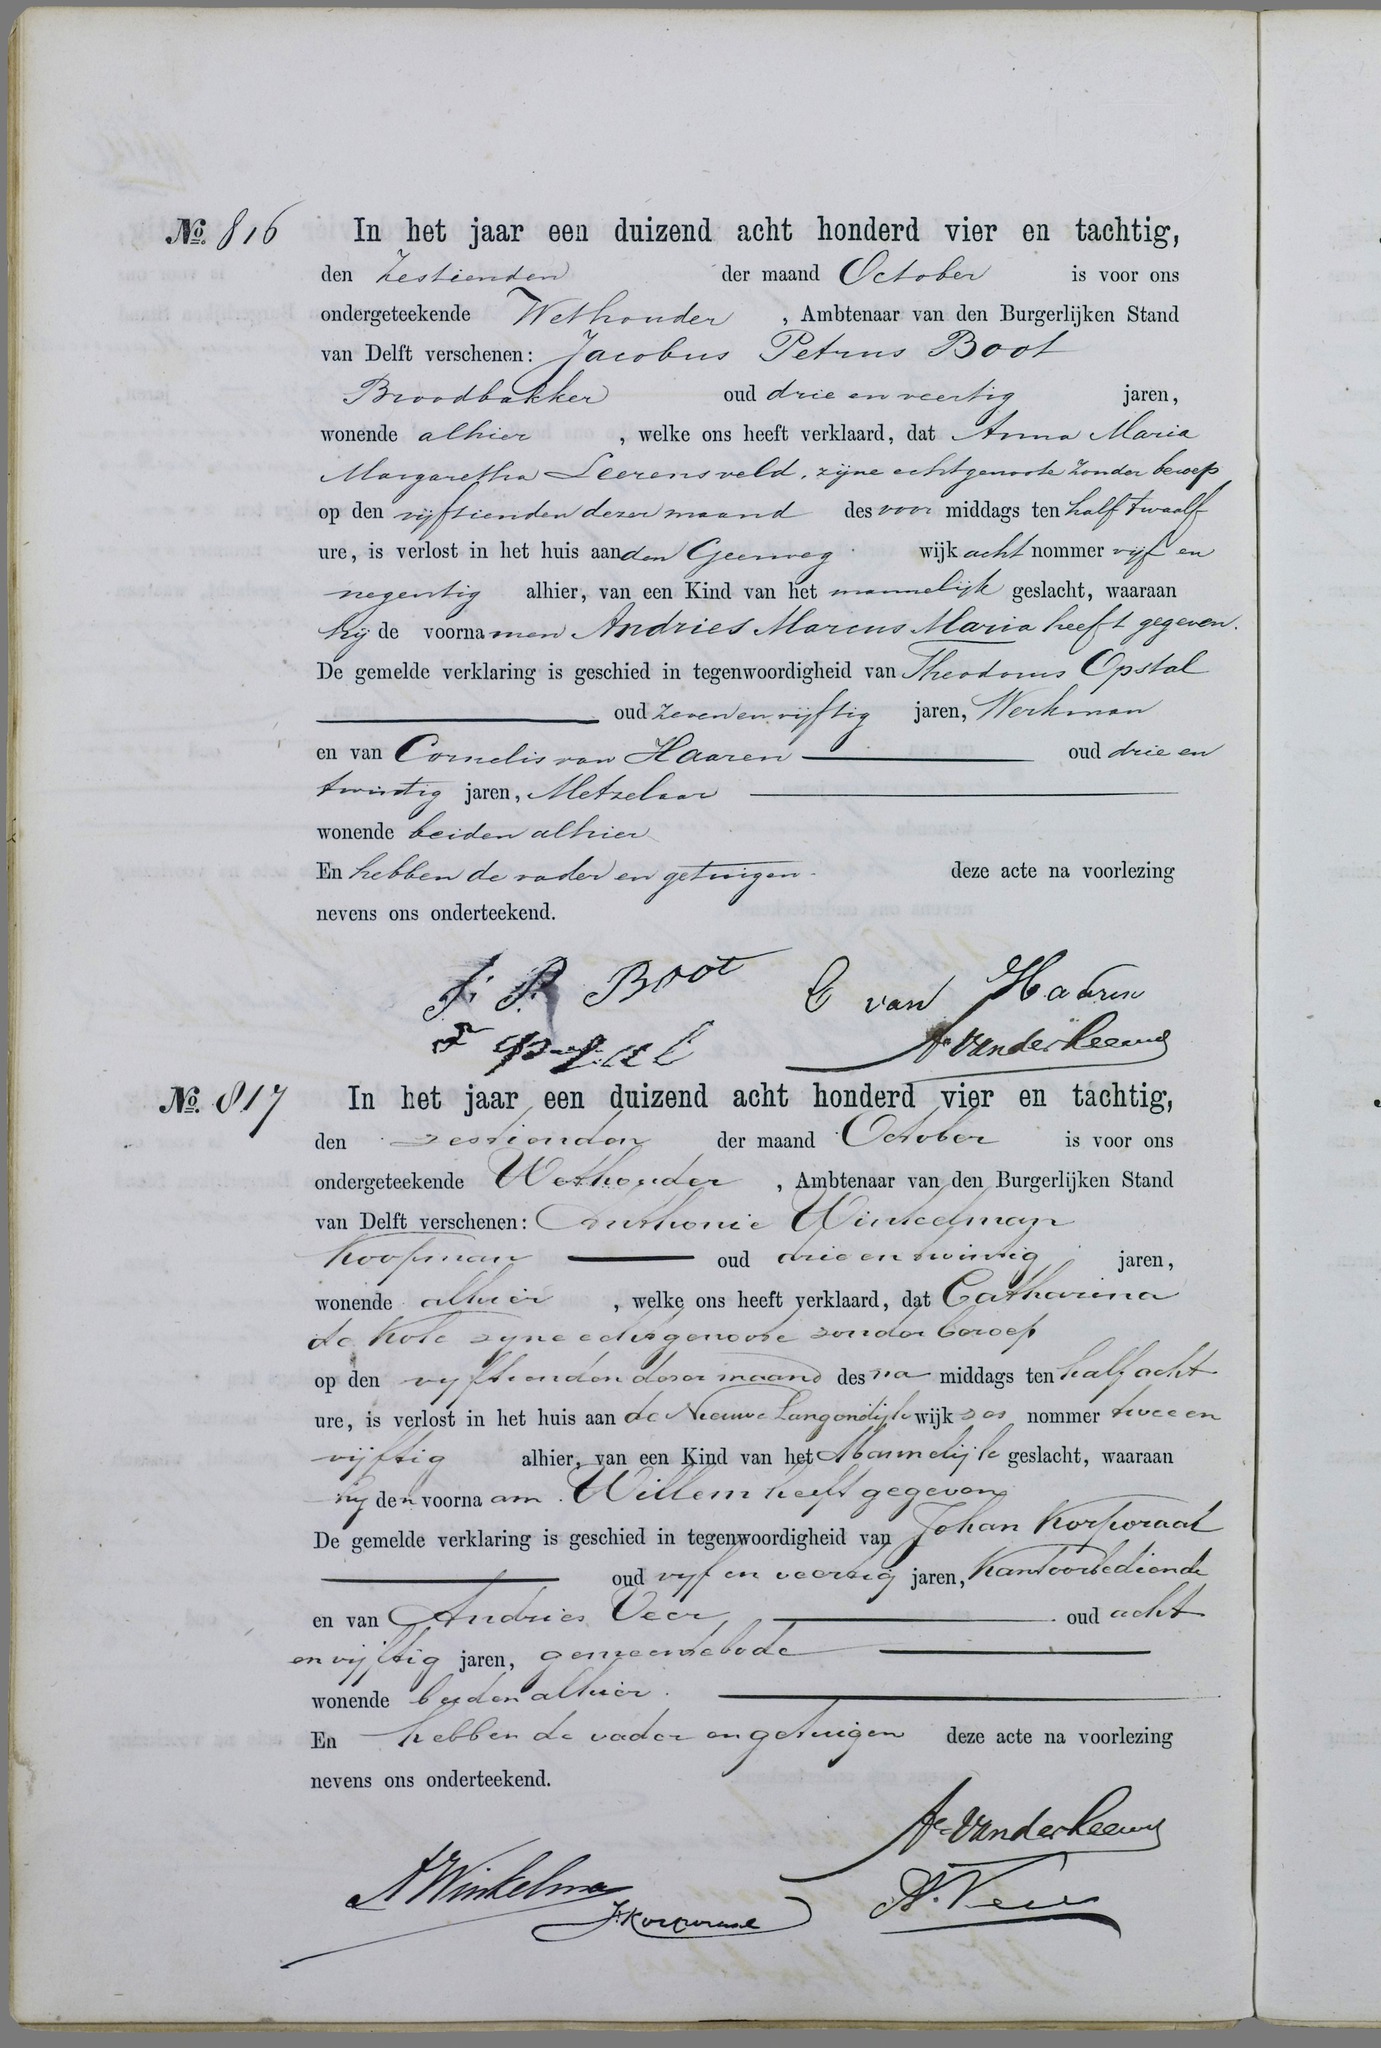 No. 816 In het jaar een duizend acht honderd vier en tachtig,
den Zestienden der maand October is voor ons
ondergeteekende Wethouder, Ambtenaar van den Burgerlijken Stand
van Delft verschenen: Jacobus Petrus Boot
Broodbakker oud drie en veertig jaren,
wonende alhier, welke ons heeft verklaard, dat Anna Maria
Margaretha Leerensveld, zijne echtgenoote zonder beroep
op den vijftienden dezer maand des voor middags ten half twaalf
ure, is verlost in het huis aan den Geerweg wijk acht nommer vijf en
negentig alhier, van een Kind van het mannelijk geslacht, waaraan
hij de voornamen Andries Marcus Maria heeft gegeven.
De gemelde verklaring is geschied in tegenwoordigheid van Theodorus Opstal
oud zeven en vijftig jaren, Werkman
en van Cornelis van Haaren oud drie en
twintig jaren, Metzelaar
wonende beiden alhier
En hebben de vader en getuigen deze acte na voorlezing
nevens ons onderteekend.
J. P. Boot C van Haaren
Avanderleeuw
No. 817 In het jaar een duizend acht honderd vier en tachtig,
den zestienden der maand October is voor ons
ondergeteekende Wethouder, Ambtenaar van den Burgerlijken Stand
van Delft verschenen: Anthonie Winkelman
Koopman oud drie en twintig jaren,
wonende alhier, welke ons heeft verklaard, dat Catharina
de Kole zyne echtgenoote zonder beroep
op den vyftienden dezer maand des na middags ten half acht
ure, is verlost in het huis aan de Nieuwe Langendijk wijk zes nommer twee en
vijftig alhier, van een Kind van het Mannelijk geslacht, waaraan
hy den voornaam Willem heeft gegeven
De gemelde verklaring is geschied in tegenwoordigheid van Johan Korporaal
oud vyf en veertig jaren, Kantoorbediende
en van Andries Veer oud acht
en vijftig jaren, gemeentebode
wonende beiden alhier.
En hebben de vader en getuigen deze acte na voorlezing
nevens ons onderteekend.
Avanderleeuw
A Winkelman
J. Korporaal A. Veer